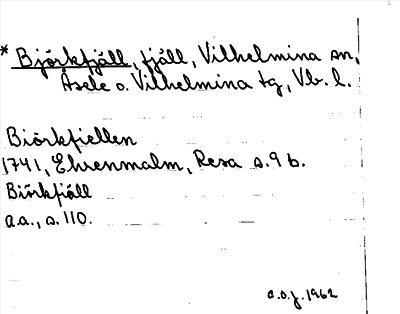 * Björkfjäll, fjäll, Vilhelmina sn,
Åsele o. Vilhelmina tg, Vb. l.
Biörkfiellen
1741, Ehrenmalm, Resa s. 96.
Biörkfiäll
a.a., s. 110.
a.o.j. 1962